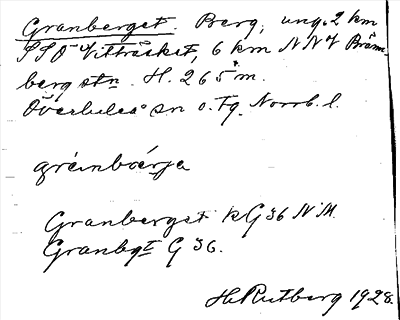 Granberget. Berg, ung. 2 km
SSO Vitträsket, 6 km NNV Bränn-
berg stn. H. 265 m.
Överluleå sn o. Tg. Norrb. l.
Granberget kG36 NM.
Granbgt G 36.
H. Rutberg 1928.